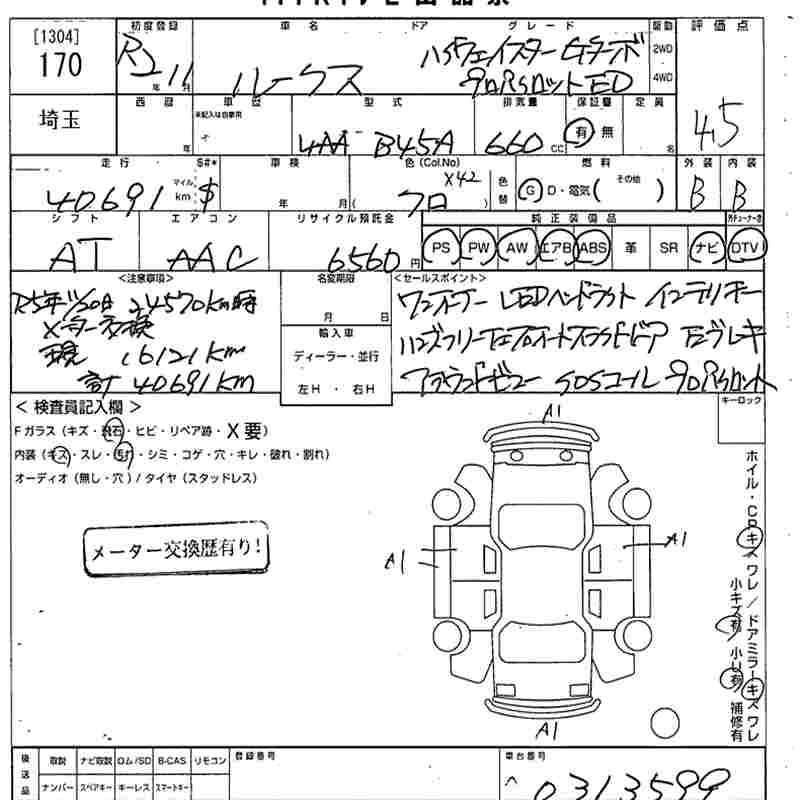 [1304]
170
埼玉
初度登録
R2 11
年 月
車名
ルークス
ドア
グレード
ハイウェイスター Gターボ
プロパイロットED
駆動
2WD
4WD
評価点
4.5
西暦
年
車歴
未記入は自家用
型式
4AA-B45A
排気量
660
CC
保証書
有 無
定員
名
走行
40691
マイル
km
$#*
$
車検
年 月
色(Col.No)
X42
クロ
色替
燃料
G D・電気( その他 )
外装
B
内装
B
シフト
AT
エアコン
AAC
リサイクル預託金
6560
円
純正装備品
PS PW AW エアB ABS 革 SR ナビ
DTV
<注意事項>
R5年11/20日 24570km時
メーター交換
現 16121km
計 40691km
名変期限
月 日
輸入車
ディーラー・並行
左H ・ 右H
<セールスポイント>
ワンオーナー LEDヘッドライト インテリキー
ハンズフリー左右オートスライドドア エマブレーキ
アラウンドビュー SOSコール プロパイロット
<検査員記入欄>
Fガラス(キズ・飛石・ヒビ・リペア跡・X要)
内装(キズ・スレ・汚れ・シミ・コゲ・穴・キレ・破れ・割れ)
オーディオ(無し・穴)/タイヤ(スタッドレス)
キーロック
メーター交換歴有り!
A1
A1
A1
A1
ホイル・CPキズワレ/ドアミラーキズワレ
小キズ有 小U有 補修有
後送品
取説 ナビ取説 ロム/SD B-CAS リモコン
ナンバー スペアキー キーレス スマートキー
登録番号
車台番号
0313599